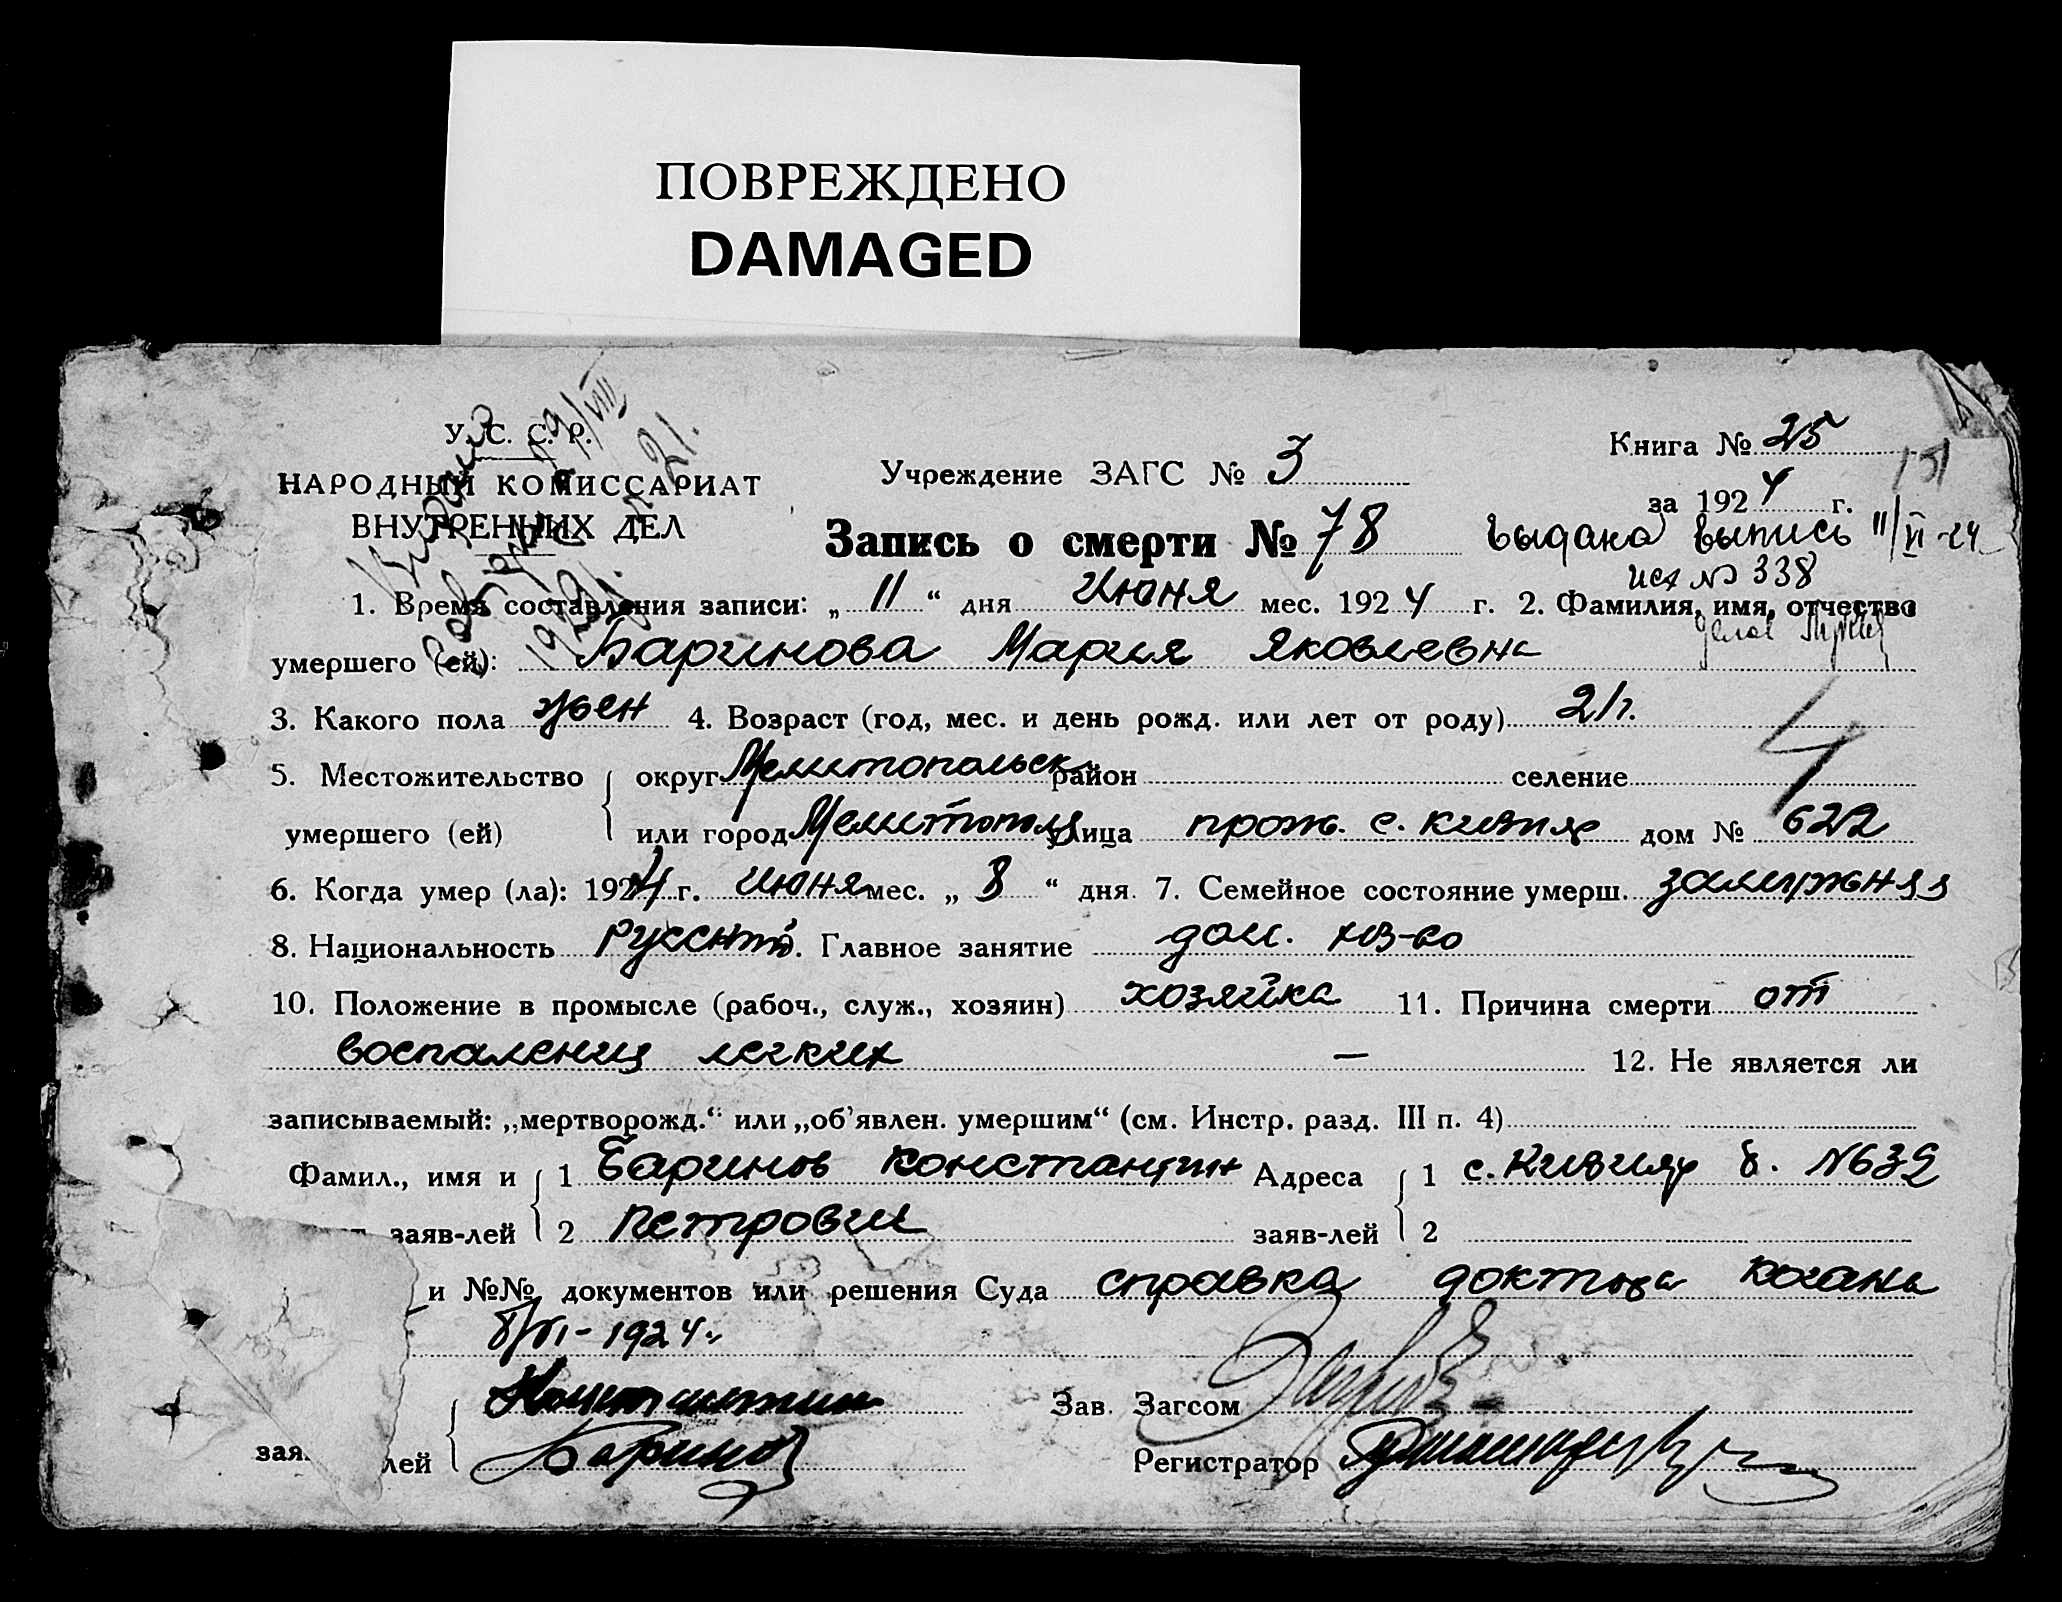 ПОВРЕЖДЕНО
DAMAGED
У. С. С. Р.
НАРОДНЫЙ КОМИССАРИАТ
ВНУТРЕННИХ ДЕЛ
19/VIII
21.
Учреждение ЗАГС № 3
Книга № 25
151
за 1924 г.
Запись о смерти № 78
выдана выпись 11/VI-24
исх № 338
1. Время составления записи: „ 11 “ дня Июня мес. 1924 г. 2. Фамилия, имя, отчество
умершего (ей): Баринова Мария Яковлевна
3. Какого пола жен 4. Возраст (год, мес. и день рожд. или лет от роду) 21г.
5. Местожительство округ Мелитопольск район селение
умершего (ей) или город Мелитополь улица прож. с. Кизияр дом № 622
6. Когда умер (ла): 1924 г. июня мес. „ 8 “ дня. 7. Семейное состояние умерш. замужняя
8. Национальность русский. Главное занятие дом. хоз-во
10. Положение в промысле (рабоч., служ., хозяин) хозяйка 11. Причина смерти от
воспаления легких — 12. Не является ли
записываемый: „мертворожд.“ или „об'явлен. умершим“ (см. Инстр. разд. III п. 4)
Фамил., имя и 1 Баринов Константин Адреса 1 с. Кизияр д. №632
заяв-лей 2 Петрович заяв-лей 2
и №№ документов или решения Суда справка доктора Когана
8/VI-1924г
Константин Зав. Загсом
зая лей Баринов Регистратор